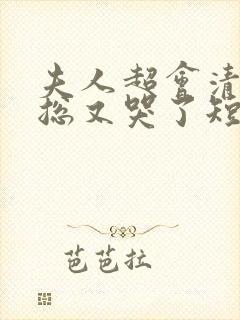 夫人超会清
总又哭了短
芭芭拉